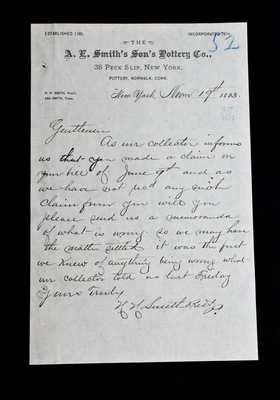 ESTABLISHED
INCORPORATED
52
THE
A. E. Smith's Son's Pottery Co.,
38 PECK SLIP, NEW YORK.
POTTERY, NORWALK, CONN.
New York, Nov 19th 1888.
Gentlemen
As our collector informs
us that you made a claim on
your bill of June 9th and as
we have not rec'd any such
claim from you will you
please send us a memoranda
of what is wrong so we may have
the matter settled it was the first
we knew of anything being wrong what
our collector told us last Friday
Yours Truly
H. H. Smith